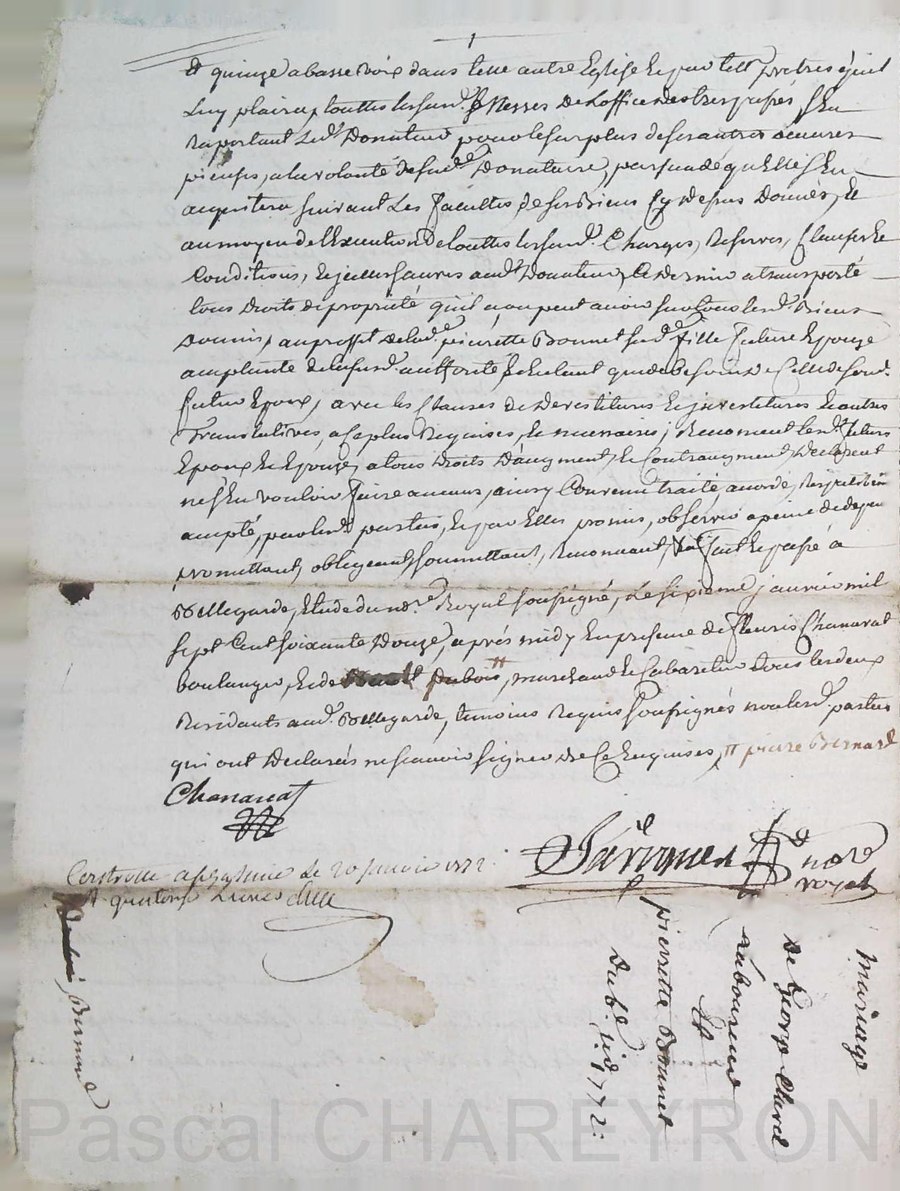 et quinze a basse voix dans telle autre Eglise et par tels pretres qu'il
Luy plaira, touttes lesusd.es Messes de L'office des trespassés, s'En
raportant Led.t Donateur pour le surplus de ses autres œuvres
pieuses, a la volonté de sad.e Donataire, persuadé qu'Elle s'En
acquittera suivant Les facultés de ses Biens Cy dessus Donnés, Et
au moyen de l'Execution de touttes lesusd.es Charges, Reserves, Clauses Et
Conditions, Et icelles sauves aud.t Donateur, Ce dernier a transporté
tous Droits de propriété qu'il a ou peut avoir sur tous lesd.s Biens
Donnés, au proffit de lad.e pierrette Bonnet sad.e fille future Epouze
authorité Entant que de besoin de Celle de sond.t
futur Epoux, avec les Clauses de Devestitures Et investitures Et autres
translatives, a ce plus Requises, Et necessaires; Renoncent lesd.s futurs
Epoux Et Epouze, a tous Droits D'augment, Et Contraugment, Declarent
n'En vouloir faire aucuns, ainsy Convenu traité accordé,
accepté, par lesd.s parties, Et par Elles promis, observer a peine de depens
promettant, obligeant, soumettant, Renonçant, fait Et passé a
Bellegarde, Etude du no.re Royal soussigné, Le sixieme janvier mil
sept Cent soixante Douze, après midy En presence de fleuris Chanavat
boulanger, Et de Dubois, marchand Et Cabaretier tous les deux
Residants aud.t Bellegarde, temoins Requis soussignés non lesd.s parties
qui ont Declarés ne sçavoir signer de Ce Enquises, // pierre Bernard
Chanavat
no.re
royal
a le 20 janvier 1772
Bernard
Mariage
De George Clavel
Laboureur
Et
pierrette Bonnet
Du 6.e jer 1772.
Pascal CHAREYRON